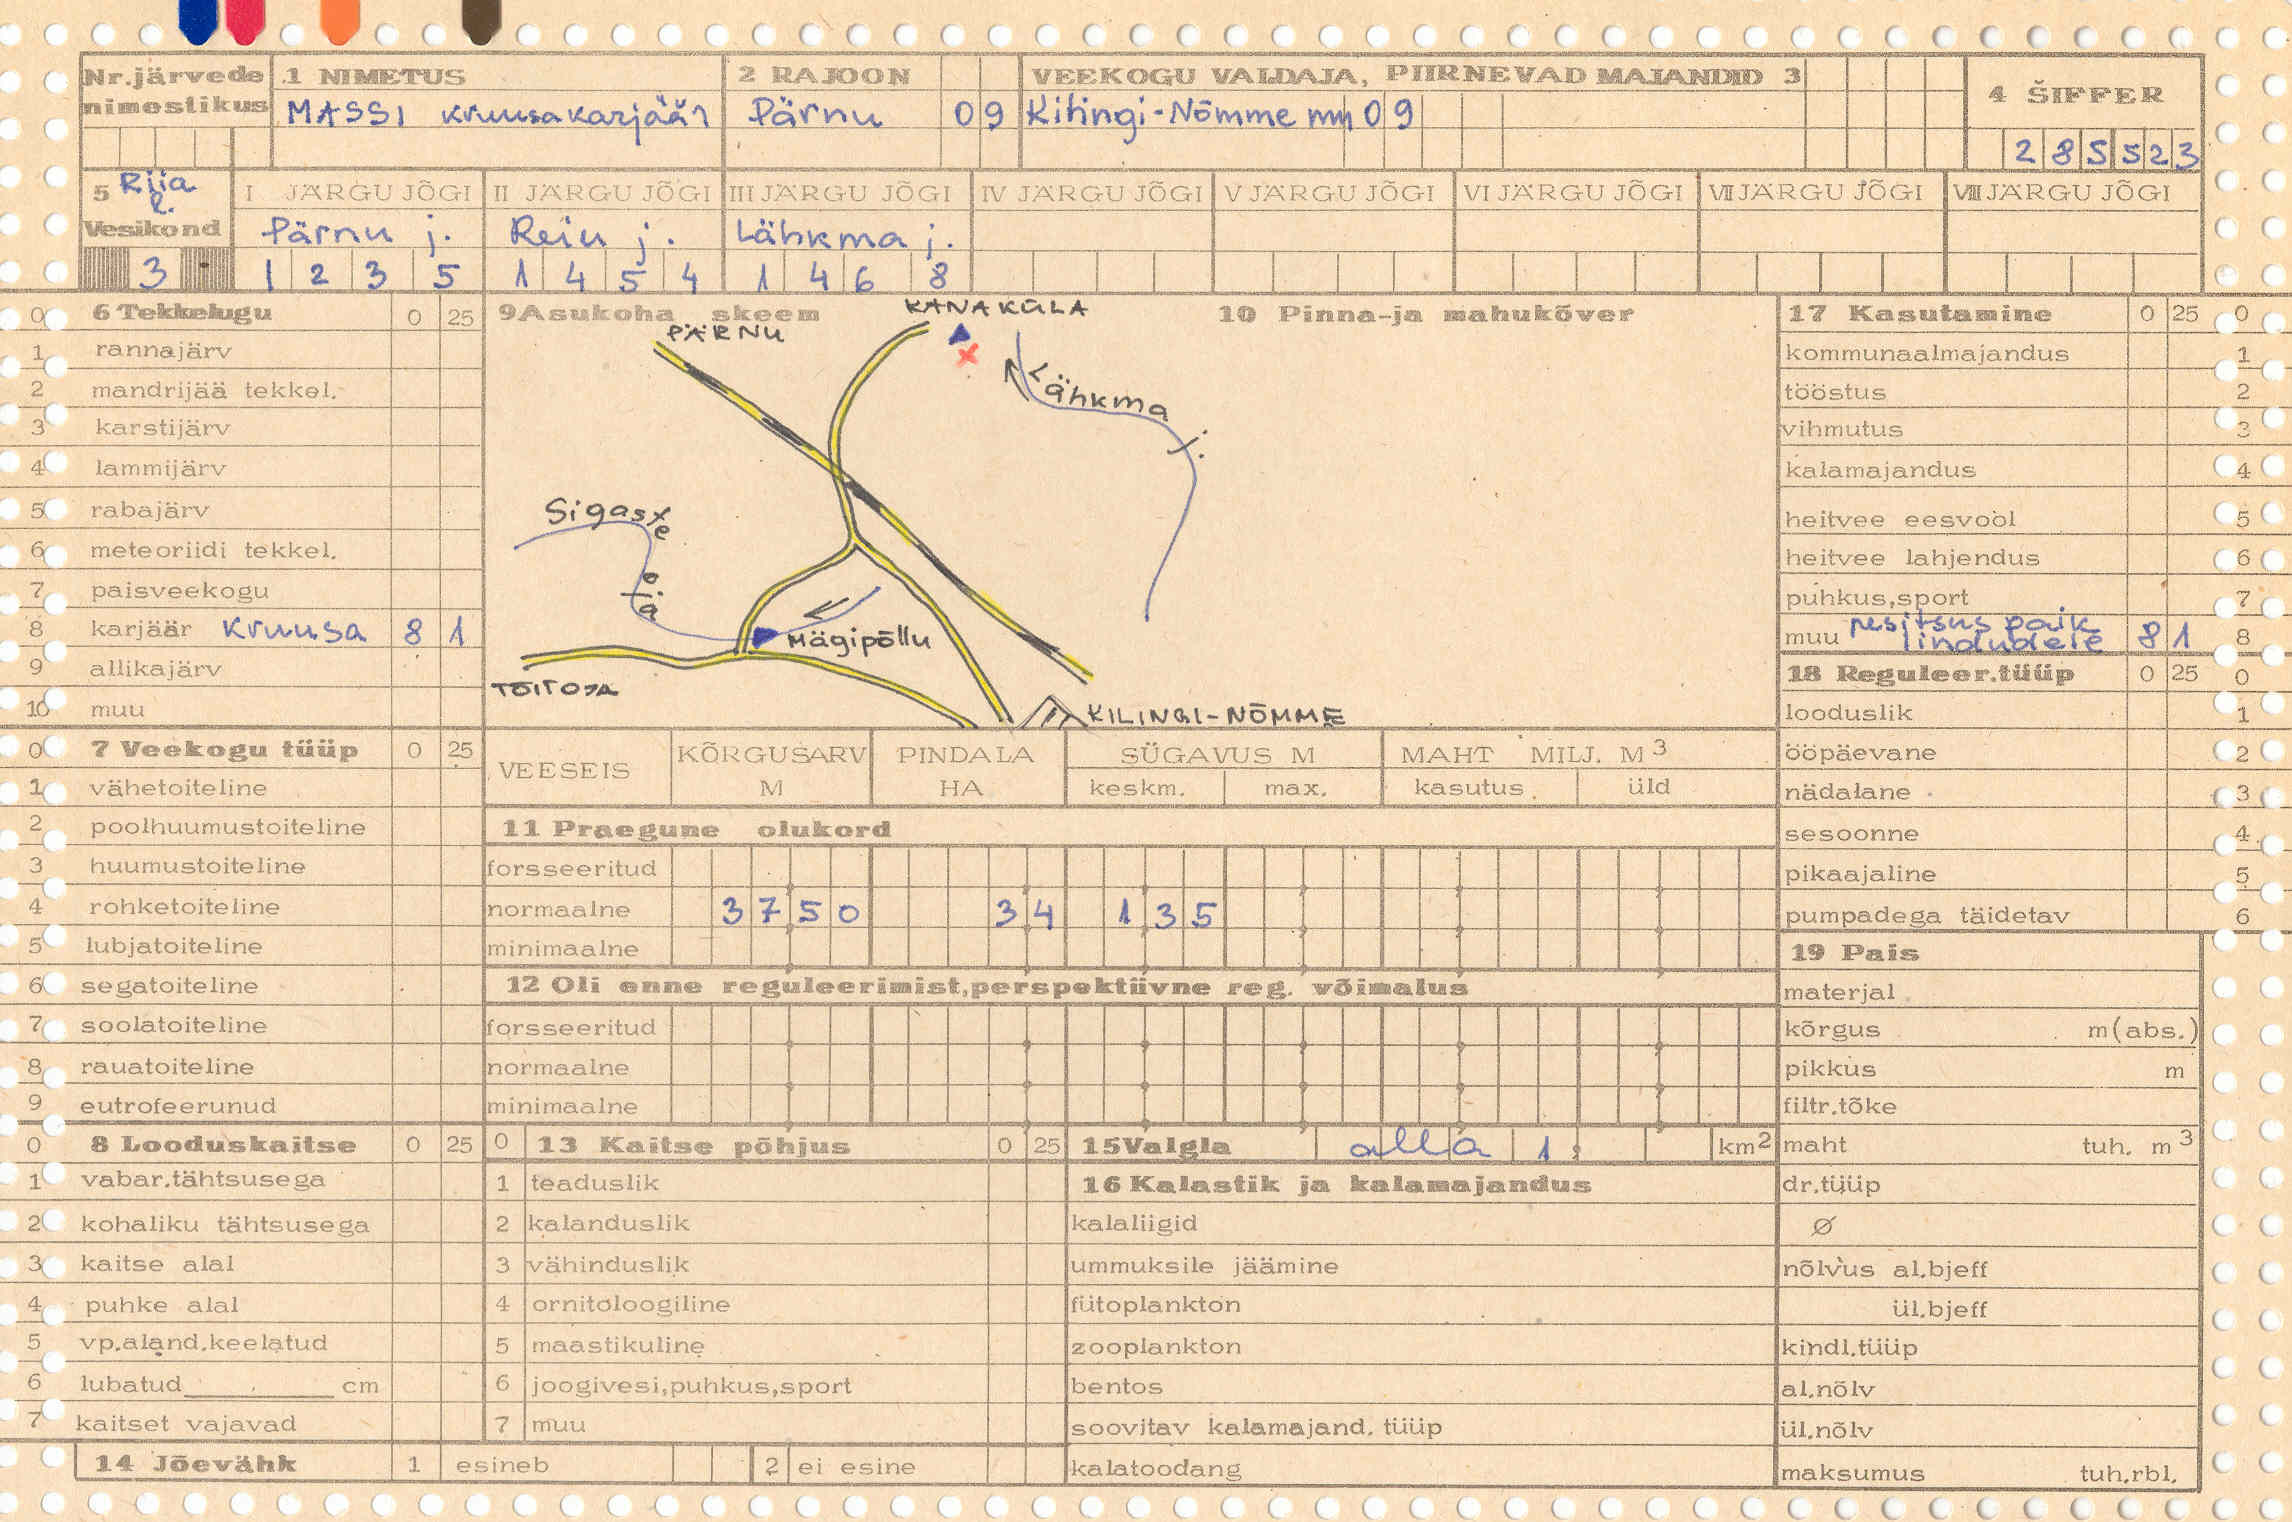 Nr.järvede nimestikus
1 NIMETUS
MASSI kruusakarjäär
2 RAJOON
Pärnu 09
VEEKOGU VALDAJA, PIIRNEVAD MAJANDID 3
Kilingi-Nõmme mm 09
4 ŠIFFER
285523
5 Riia
Vesikond
3
I JÄRGU JÕGI
Pärnu j.
1235
II JÄRGU JÕGI
Reiu j.
1454
III JÄRGU JÕGI
Lähkma j.
1468
IV JÄRGU JÕGI
V JÄRGU JÕGI
VI JÄRGU JÕGI
VII JÄRGU JÕGI
VIII JÄRGU JÕGI
0 6 Tekkelugu 0 25
1 rannajärv
2 mandrijää tekkel.
3 karstijärv
4 lammijärv
5 rabajärv
6 meteoriidi tekkel.
7 paisveekogu
8 karjäär kruusa 8 1
9 allikajärv
10 muu
0 7 Veekogu tüüp 0 25
1 vähetoiteline
2 poolhuumustoiteline
3 huumustoiteline
4 rohketoiteline
5 lubjatoiteline
6 segatoiteline
7 soolatoiteline
8 rauatoiteline
9 eutrofeerunud
0 8 Looduskaitse 0 25
1 vabar.tähtsusega
2 kohaliku tähtsusega
3 kaitse alal
4 puhke alal
5 vp.aland.keelatud
6 lubatud cm
7 kaitset vajavad
9 Asukoha skeem
10 Pinna-ja mahukõver
KANAKÜLA
PÄRNU
Lähkma j.
Sigaste
oja
Mägipõllu
TÕITOJA
KILINGI-NÕMME
VEESEIS
KÕRGUSARV M
PINDALA HA
SÜGAVUS M
keskm. max.
MAHT MILJ. M3
kasutus üld
11 Praegune olukord
forsseeritud
normaalne 3750 34 135
minimaalne
12 Oli enne reguleerimist,perspektiivne reg. võimalus
forsseeritud
normaalne
minimaalne
0 13 Kaitse põhjus 0 25
1 teaduslik
2 kalanduslik
3 vähinduslik
4 ornitoloogiline
5 maastikuline
6 joogivesi,puhkus,sport
7 muu
14 Jõevähk 1 esineb 2 ei esine
15 Valgla alla 1, km2
16 Kalastik ja kalamajandus
kalaliigid
ummuksile jäämine
fütoplankton
zooplankton
bentos
soovitav kalamajand. tüüp
kalatoodang
17 Kasutamine 0 25 0
kommunaalmajandus 1
tööstus 2
vihmutus 3
kalamajandus 4
heitvee eesvool 5
heitvee lahjendus 6
puhkus,sport 7
muu pesitsus paik lindudele 8 1 8
18 Reguleer.tüüp 0 25 0
looduslik 1
ööpäevane 2
nädalane 3
sesoonne 4
pikaajaline 5
pumpadega täidetav 6
19 Pais
materjal
kõrgus m(abs.)
pikkus m
filtr.tõke
maht tuh. m3
dr.tüüp
Ø
nõlvus al.bjeff
ül.bjeff
kindl.tüüp
al.nõlv
ül.nõlv
maksumus tuh.rbl.